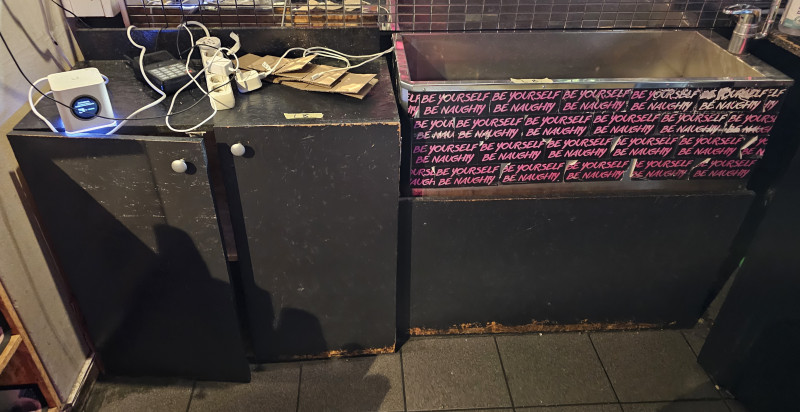 BE YOURSELF BE YOURSELF BE YOURSELF BE YOURSELF YOURSELF
BE NAUGHTY BE NAUGHTY BE NAUGHTY BE NAUGHTY BE NAUGHTY
BE YOURSELF BE YOURSELF BE YOURSELF BE YOURSELF BE YOURSELF
BE NAUGHTY BE NAUGHTY BE NAUGHTY BE NAUGHTY
BE YOURSELF BE YOURSELF BE YOURSELF BE YOURSELF BE YOURSELF
BE NAUGHTY BE NAUGHTY BE NAUGHTY BE NAUGHTY BE NAUGHTY
YOURSELF BE YOURSELF BE YOURSELF BE YOURSELF BE YOURSELF
BE NAUGHTY BE NAUGHTY BE NAUGHTY BE NAUGHTY BE NAUGHTY